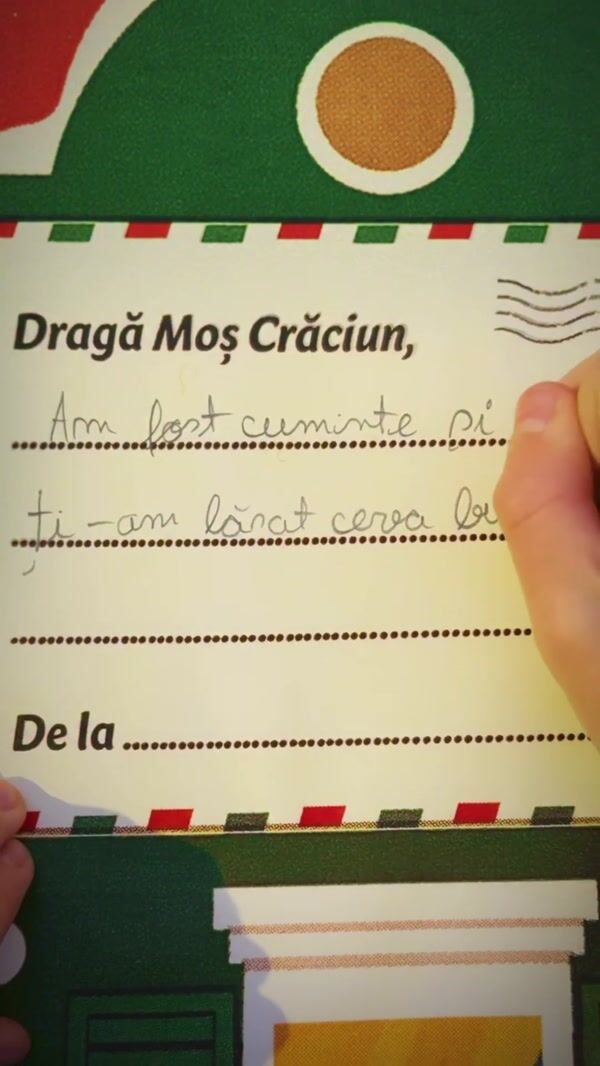 Dragă Moș Crăciun,
Am fost cuminte și
ți-am lăsat ceva
De la